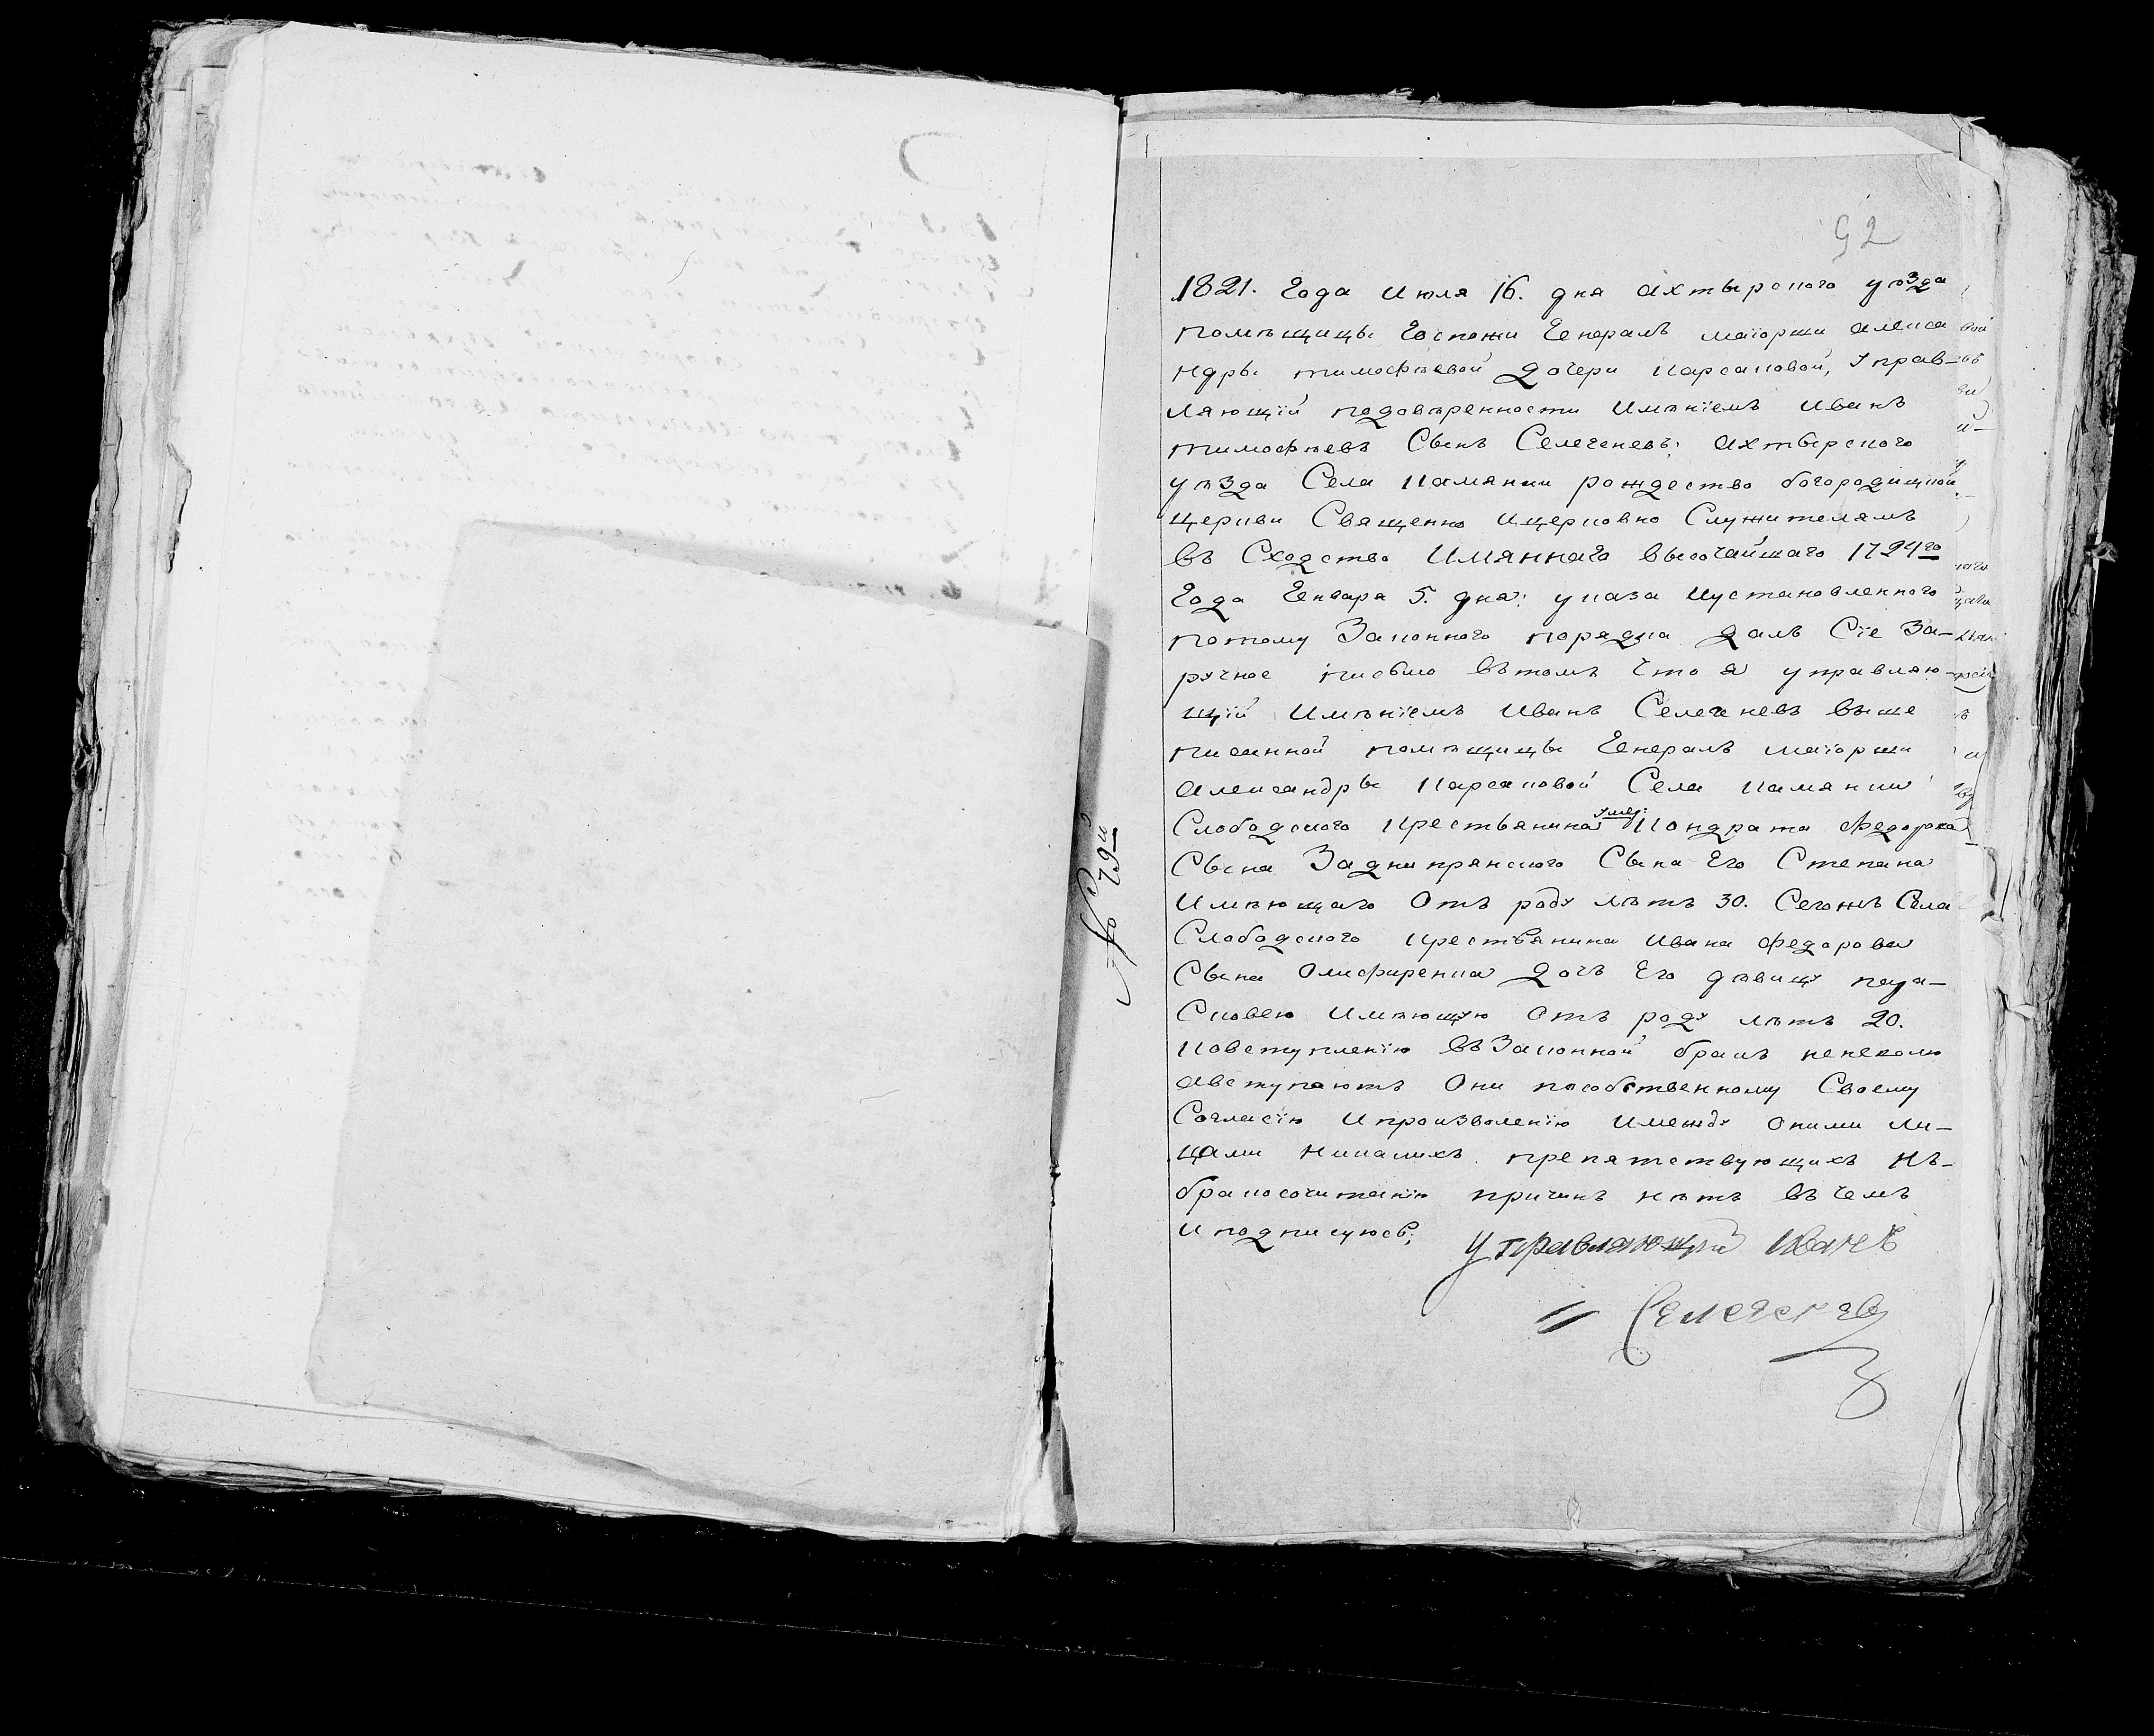 92
1821. Года Июля 16. дня Ахтырского уѣзда
помѣщицы Госпожи Генералъ маіорши Алекса
ндры тимофѣевой дочери Карсаковой, Управ-
ляющій подовѣренности Имѣніемъ Иванъ
тимофѣевъ Сынъ Селегеневъ; Ахтырского
уѣзда Села Камянки рождество богородицкой
церкви Священно Ицерковно Служителямъ
въ Сходство Имяннаго высочайшаго 1724го
Года Генваря 5. дня: указа Иустановленного
потому Законного порядка далъ Сіе За-
ручное письмо вътомъ Что я управляю-
щій Имѣніемъ Иванъ Селегеневъ выше
писанной помѣщицы Генералъ маіорши
Александры Карсаковой Села Камянки
Слободского Крестьянина умер: Кондрата Федорова
Сына Заднипрянского Сына Его Степана
Имѣющаго Отъ роду лѣтъ 30. Сегожъ Села
Слободского Крестьянина Ивана Федорова
Сына Олифиренка Дочъ Его дѣвицу пара-
Сковею Имѣющую Отъ роду лѣтъ 20.
Ковступленію въЗаконной бракъ неневолю
Авступаютъ Они пособственному Своему
Согласію Ипроизволенію Имежду Оними Ли-
цами Никакихъ препятствующихъ Къ-
бракосочитанію причинъ нѣтъ въ чемъ
Иподписуюсь;
Управляющій Иванъ
Селегеневъ
№ 79й